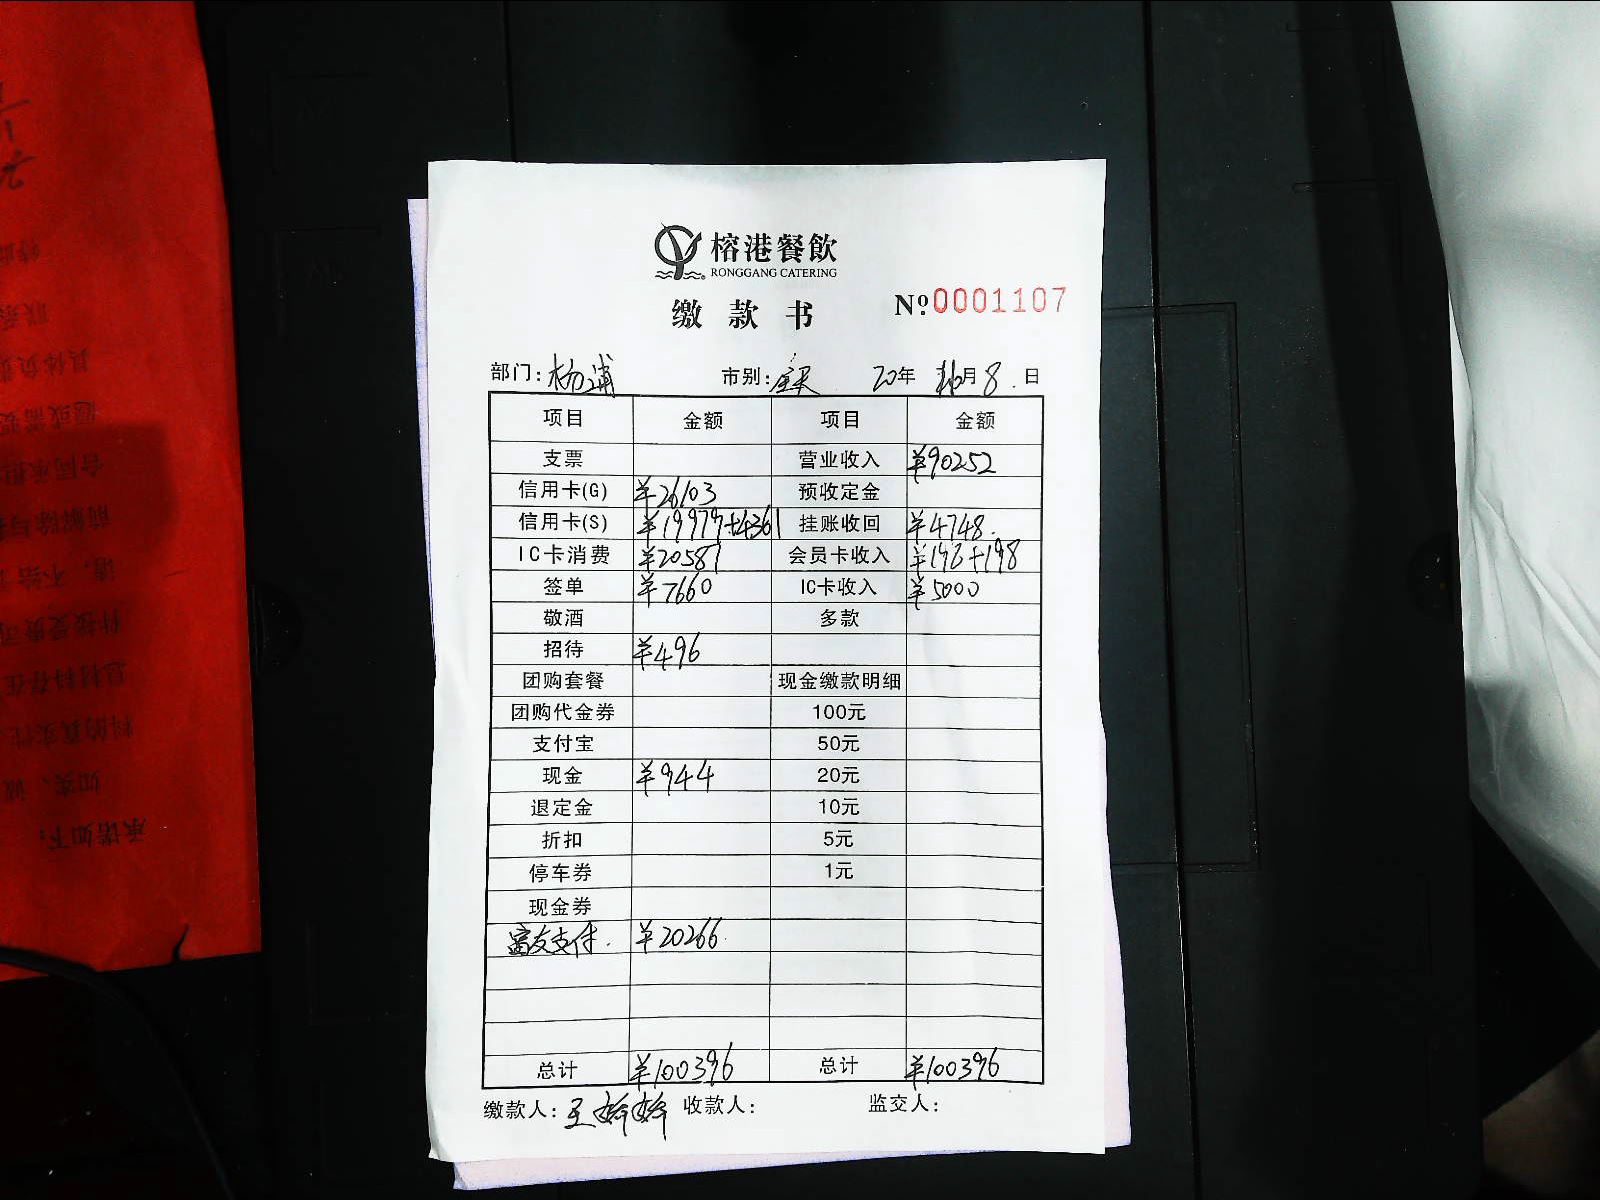 榕港餐飲
RONGGANG CATERING
缴款书
Nº 0001107
部门：杨浦 市别： 20年 10月 8日
项目 金额 项目 金额
支票 营业收入 ¥90252
信用卡(G) ¥26103 预收定金
信用卡(S) ¥19979+4361 挂账收回 ¥4748
IC卡消费 ¥20581 会员卡收入 ¥198+198
签单 ¥7660 IC卡收入 ¥5000
敬酒 多款
招待 ¥496
团购套餐 现金缴款明细
团购代金券 100元
支付宝 50元
现金 ¥944 20元
退定金 10元
折扣 5元
停车券 1元
现金券
富友支付 ¥20266
总计 ¥100396 总计 ¥100396
缴款人：王婷婷 收款人： 监交人：
承诺如下：
如实、诚
料的真实性